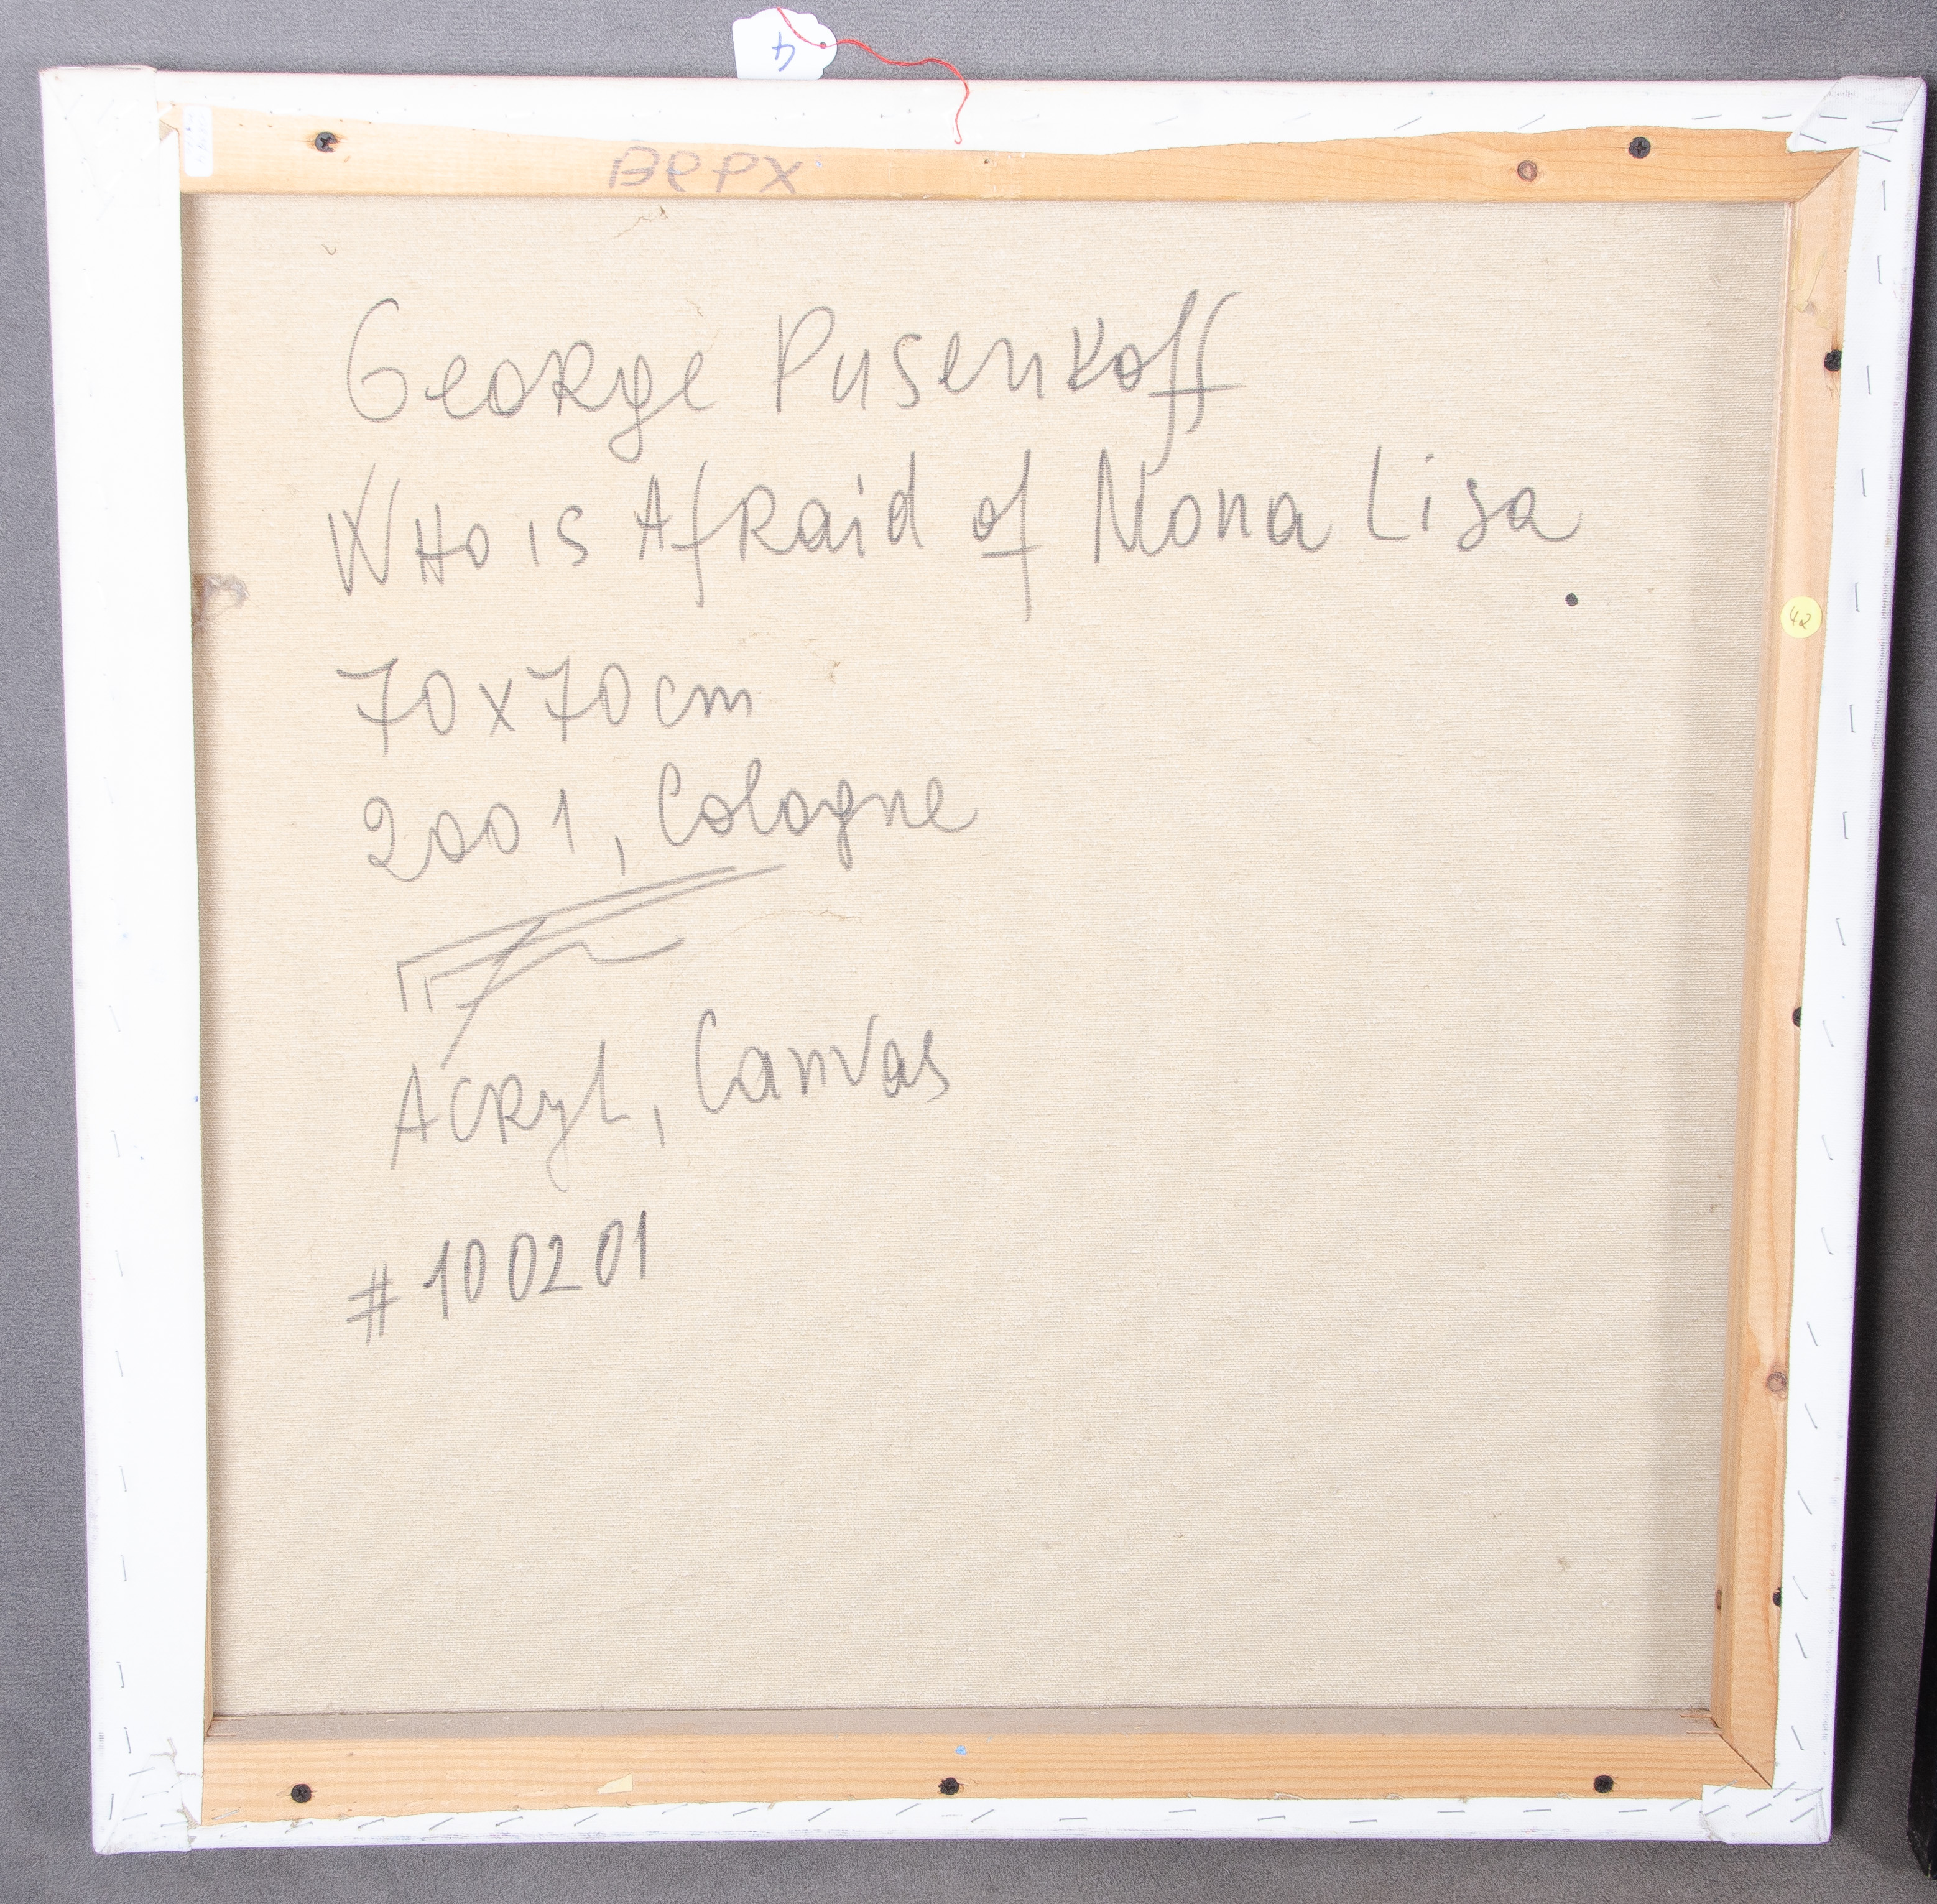 4
верх
George Pusenkoff
Who is Afraid of Mona Lisa
42
70x70cm
2001, Cologne
Acryl, Canvas
#100201